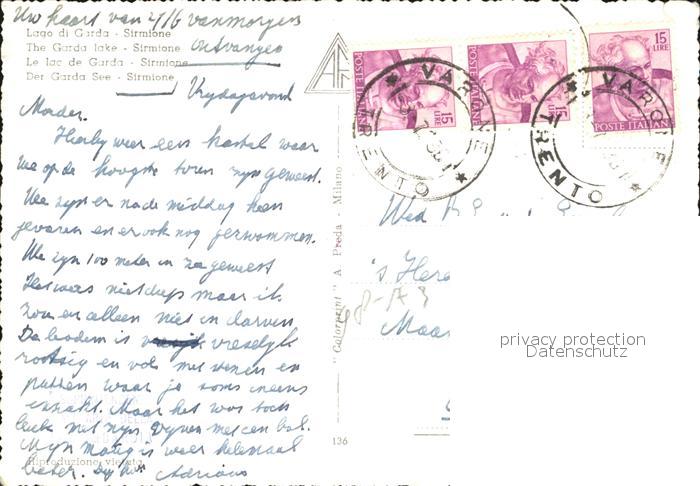 Uw kaart van 2/6 vanmorgen
ontvangen
Lago di Garda - Sirmione
The Garda lake - Sirmione
Le lac de Garda - Sirmione
Der Garda See - Sirmione
Vrydagavond
Moeder.
Hierby weer een kasteel waar
we op de hoogste toren zyn geweest.
We zyn er na de middag heen
gevaren en er ook nog gezwommen.
We zyn 100 meter in zee geweest
Het was niet diep maar ik
zou er alleen niet in durven
De bodem is vreselyk
rotsig en vol met stenen en
putten waar je soms ineens
inzakt. Maar het was toch
leuk met zyn vyven met een bal.
Myn maag is weer helemaal
beter. Adrians
Riproduzione vietata
"Colorprint" A. Preda - Milano
136
15 LIRE
POSTE ITALIANE
15 LIRE
POSTE ITALIANE
15 LIRE
POSTE ITALIANE
VARONE
TRENTO
VARONE
TRENTO
Wed
's Here
Maas
privacy protection
Datenschutz